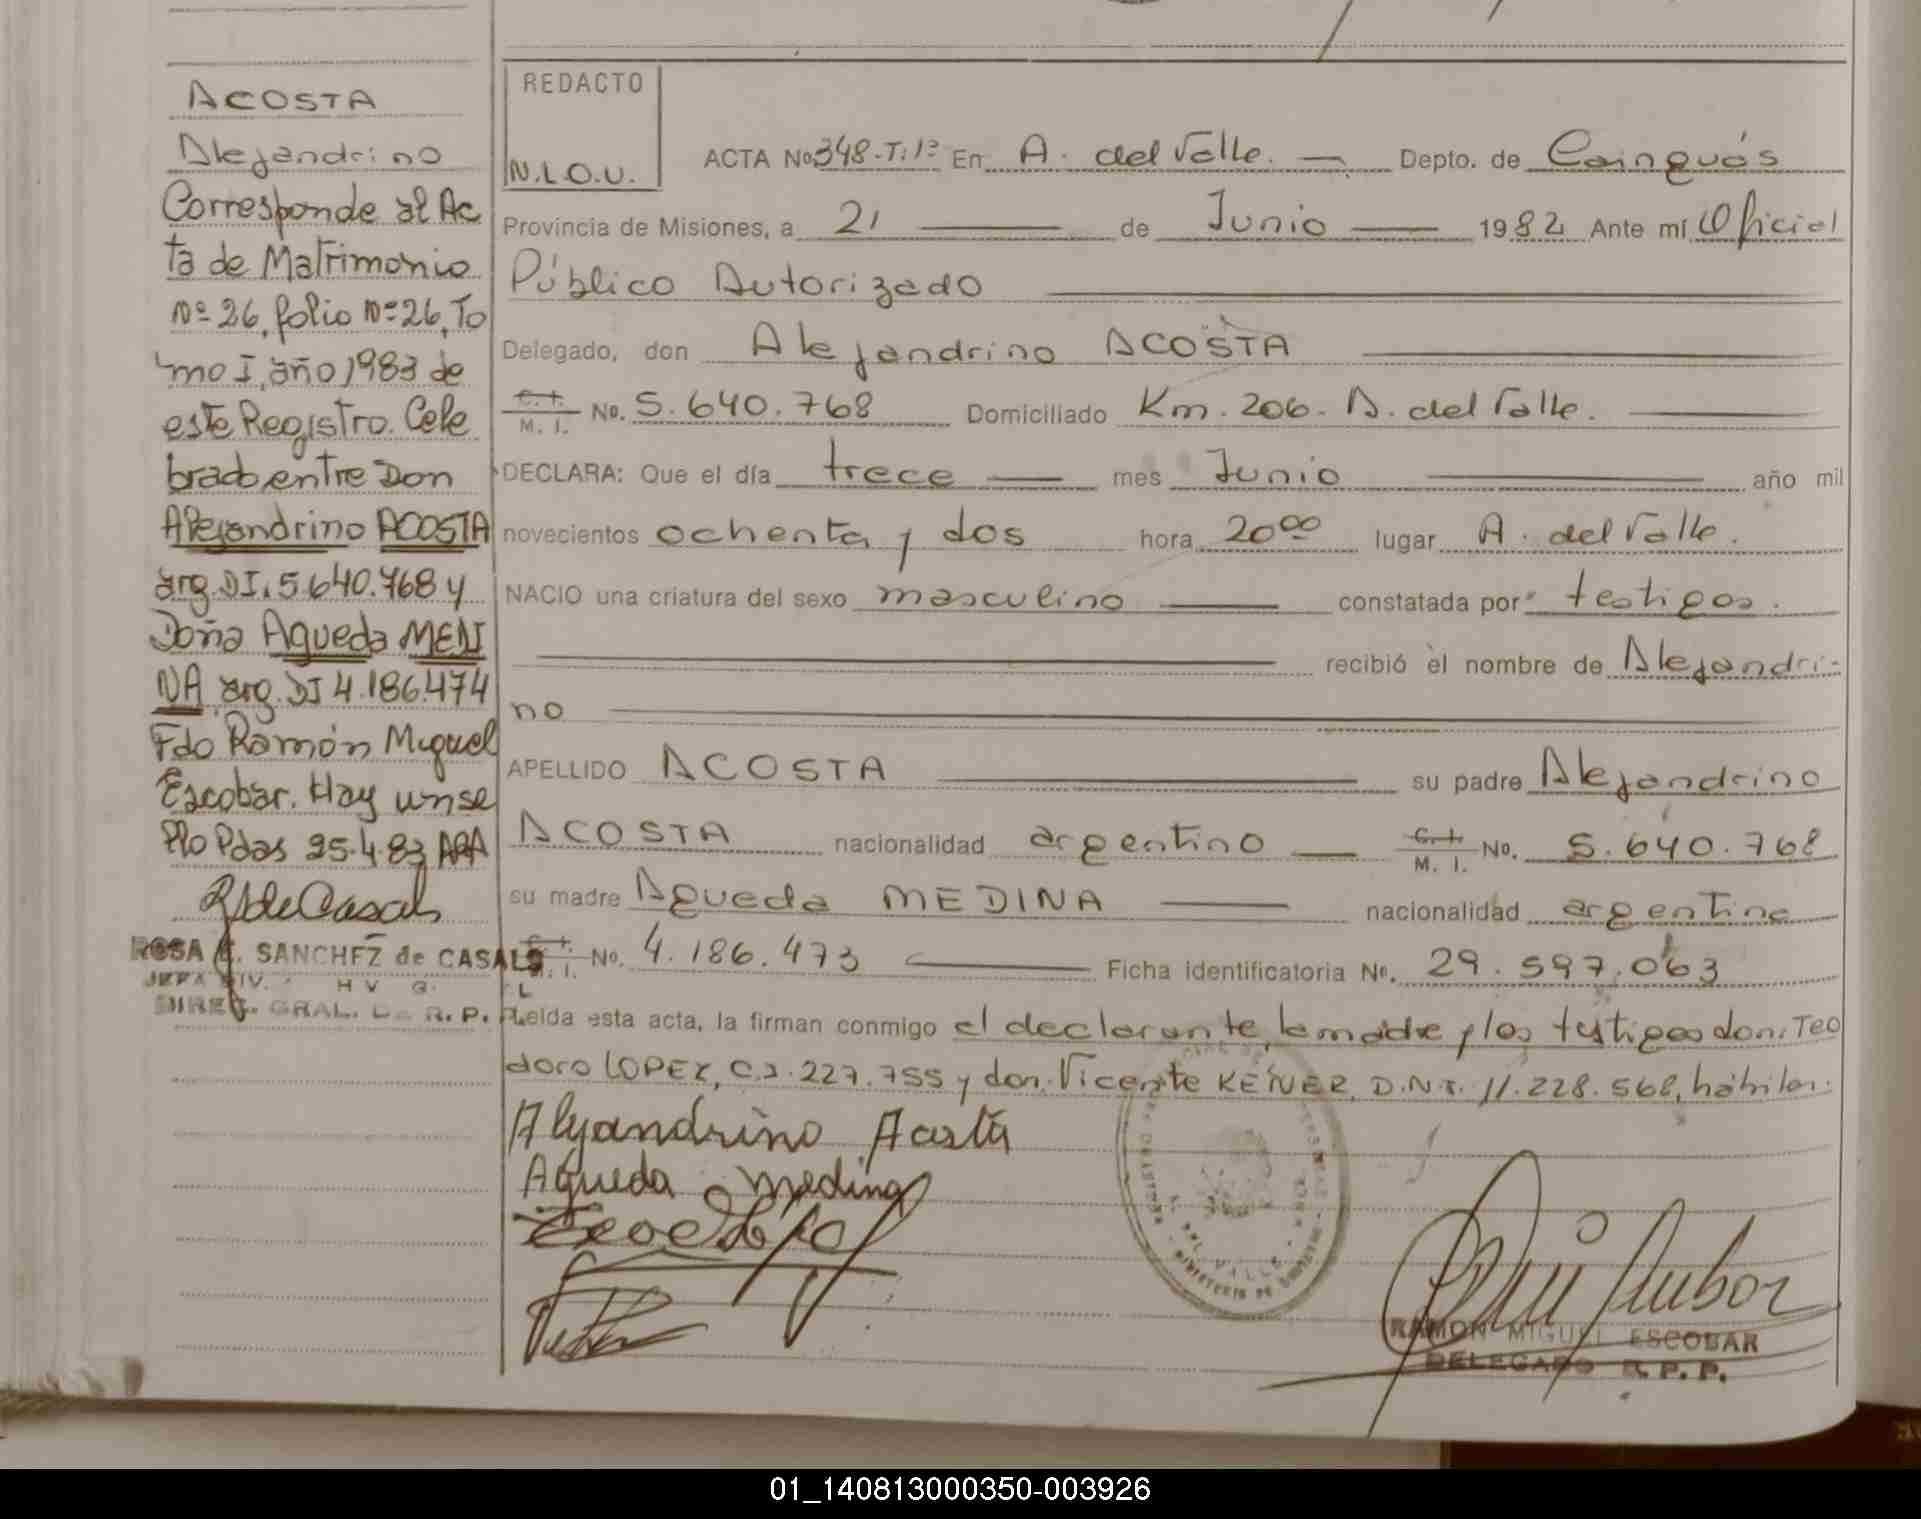 ACOSTA
Alejandrino
Corresponde al Ac
ta de Matrimonio
Nº 26, folio Nº 26, To
mo I, año 1983 de
este Registro. Cele
brado entre Don
Alejandrino ACOSTA
arg. DI. 5.640.768 y
Doña Agueda MEDI
NA arg. DI 4.186.474
Fdo Ramón Miguel
Escobar. Hay un se
llo Pdas 25.4.83 ARA
RSdeCasals
ROSA E. SANCHEZ de CASALS
JEFA DIV.
DIREC. GRAL. R. P.
REDACTO
N.L.O.U.
ACTA No 348-T:1º En A. del Valle. — Depto. de Cainguás
Provincia de Misiones, a 21 — de Junio — 1982 Ante mí Oficial
Público Autorizado
Delegado, don Alejandrino ACOSTA
C. I. M. I. No. 5.640.768 Domiciliado Km. 206. A. del Valle.
DECLARA: Que el día trece — mes Junio — año mil
novecientos ochenta y dos hora 20⁰⁰ lugar A. del Valle.
NACIO una criatura del sexo masculino — constatada por testigos.
recibió el nombre de Alejandri-
no
APELLIDO ACOSTA — su padre Alejandrino
ACOSTA nacionalidad argentino — C. I. M. I. No. 5.640.768
su madre Agueda MEDINA — nacionalidad argentina
C. I. M. I. No. 4.186.473 — Ficha identificatoria No. 29.597.063
Leída esta acta, la firman conmigo el declarante, la madre y los testigos don: Teo
doro LOPEZ, C.I. 227.755 y don: Vicente KEINER, D.N.I. 11.228.568, hábiles.
Alejandrino Acosta
Agueda Medina
A. DEL VALLE
MINISTERIO DE GOBIERNO
RAMON MIGUEL ESCOBAR
DELEGADO R. P. P.
01_140813000350-003926